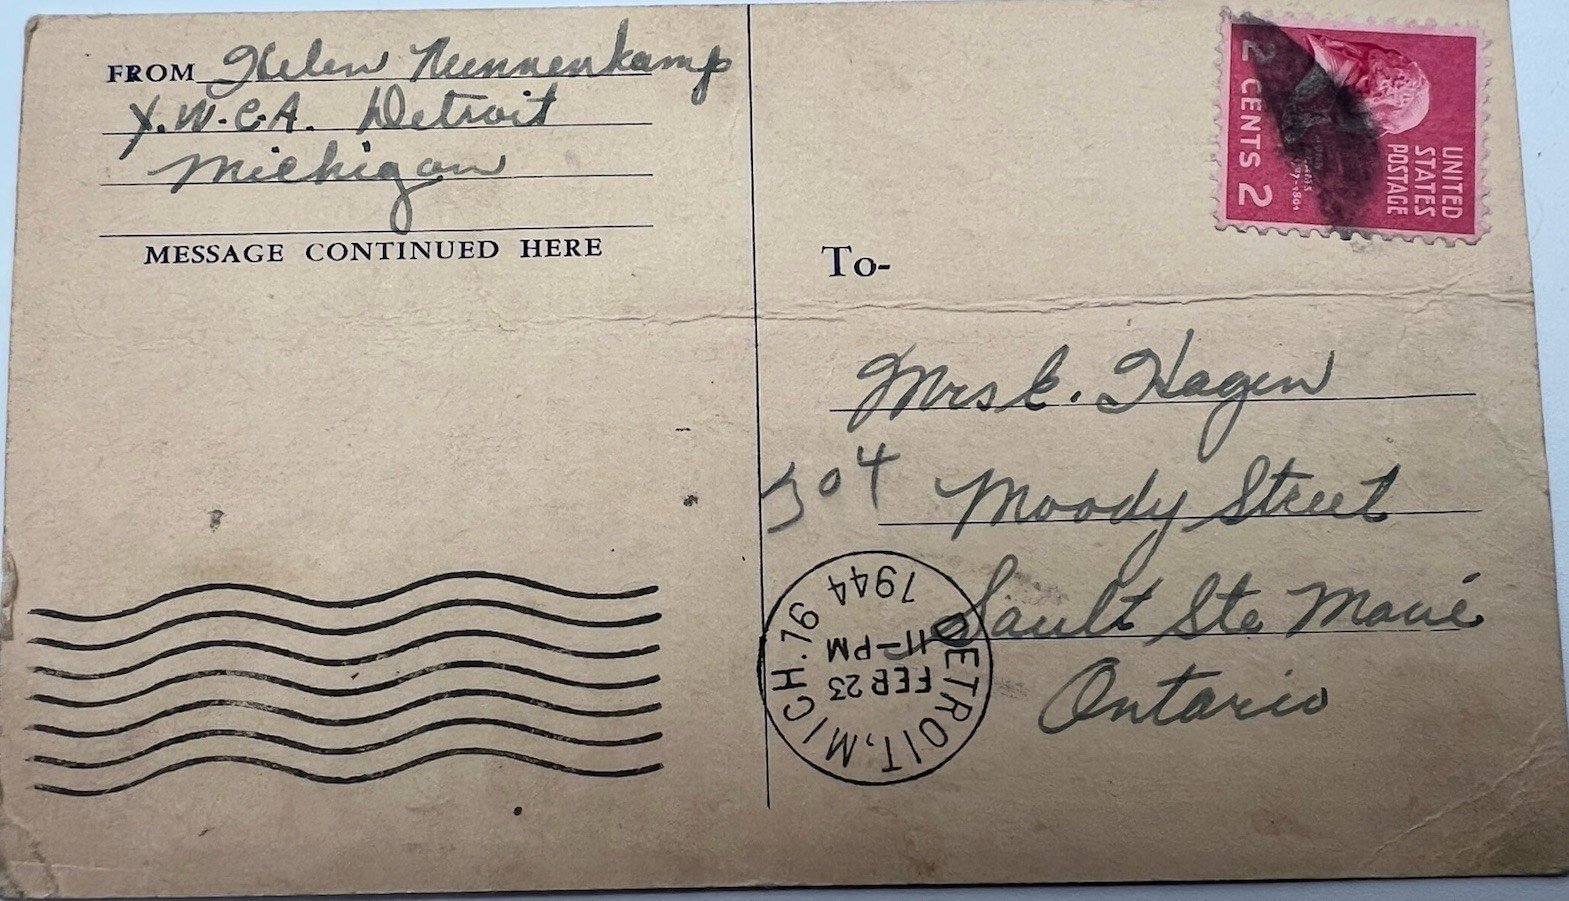 FROM Helen Nunnenkamp
Y.W.C.A. Detroit
Michigan
MESSAGE CONTINUED HERE
2 CENTS 2
UNITED
STATES
POSTAGE
To-
Mrs E. Hagen
304 Moody Street
Sault Ste Marie
Ontario
DETROIT, MICH. 16
FEB 23
11-PM
1944